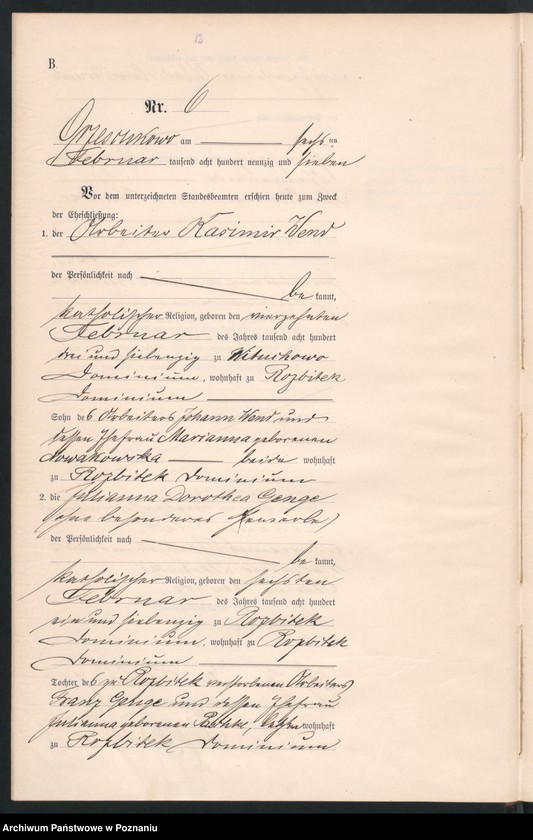 B.
Nr. 6
am sechs ten
Februar tausend acht hundert neunzig und sieben
Vor dem unterzeichneten Standesbeamten erschien heute zum Zweck
der Eheschließung:
1. der Arbeiter Kasimir Wend
der Persönlichkeit nach
be kannt,
katholischer Religion, geboren den vierzehnten
Februar des Jahres tausend acht hundert
drei und siebenzig zu
Dominium, wohnhaft zu Rozbitek
Dominium
Sohn des Arbeiters Johann Wend und
dessen Ehefrau Marianna geborenen
Nowakowska beide wohnhaft
zu Rozbitek Dominium
2. die Julianna Dorothea Genge
ohne besonderes Gewerbe
der Persönlichkeit nach
be kannt,
katholischer Religion, geboren den sechsten
Februar des Jahres tausend acht hundert
ein und siebenzig zu Rozbitek
Dominium, wohnhaft zu Rozbitek
Dominium
Tochter des zu Rozbitek verstorbenen Arbeiters
Franz Genge und dessen Ehefrau
Julianna geborenen wohnhaft
zu Rozbitek Dominium
Archiwum Państwowe w Poznaniu